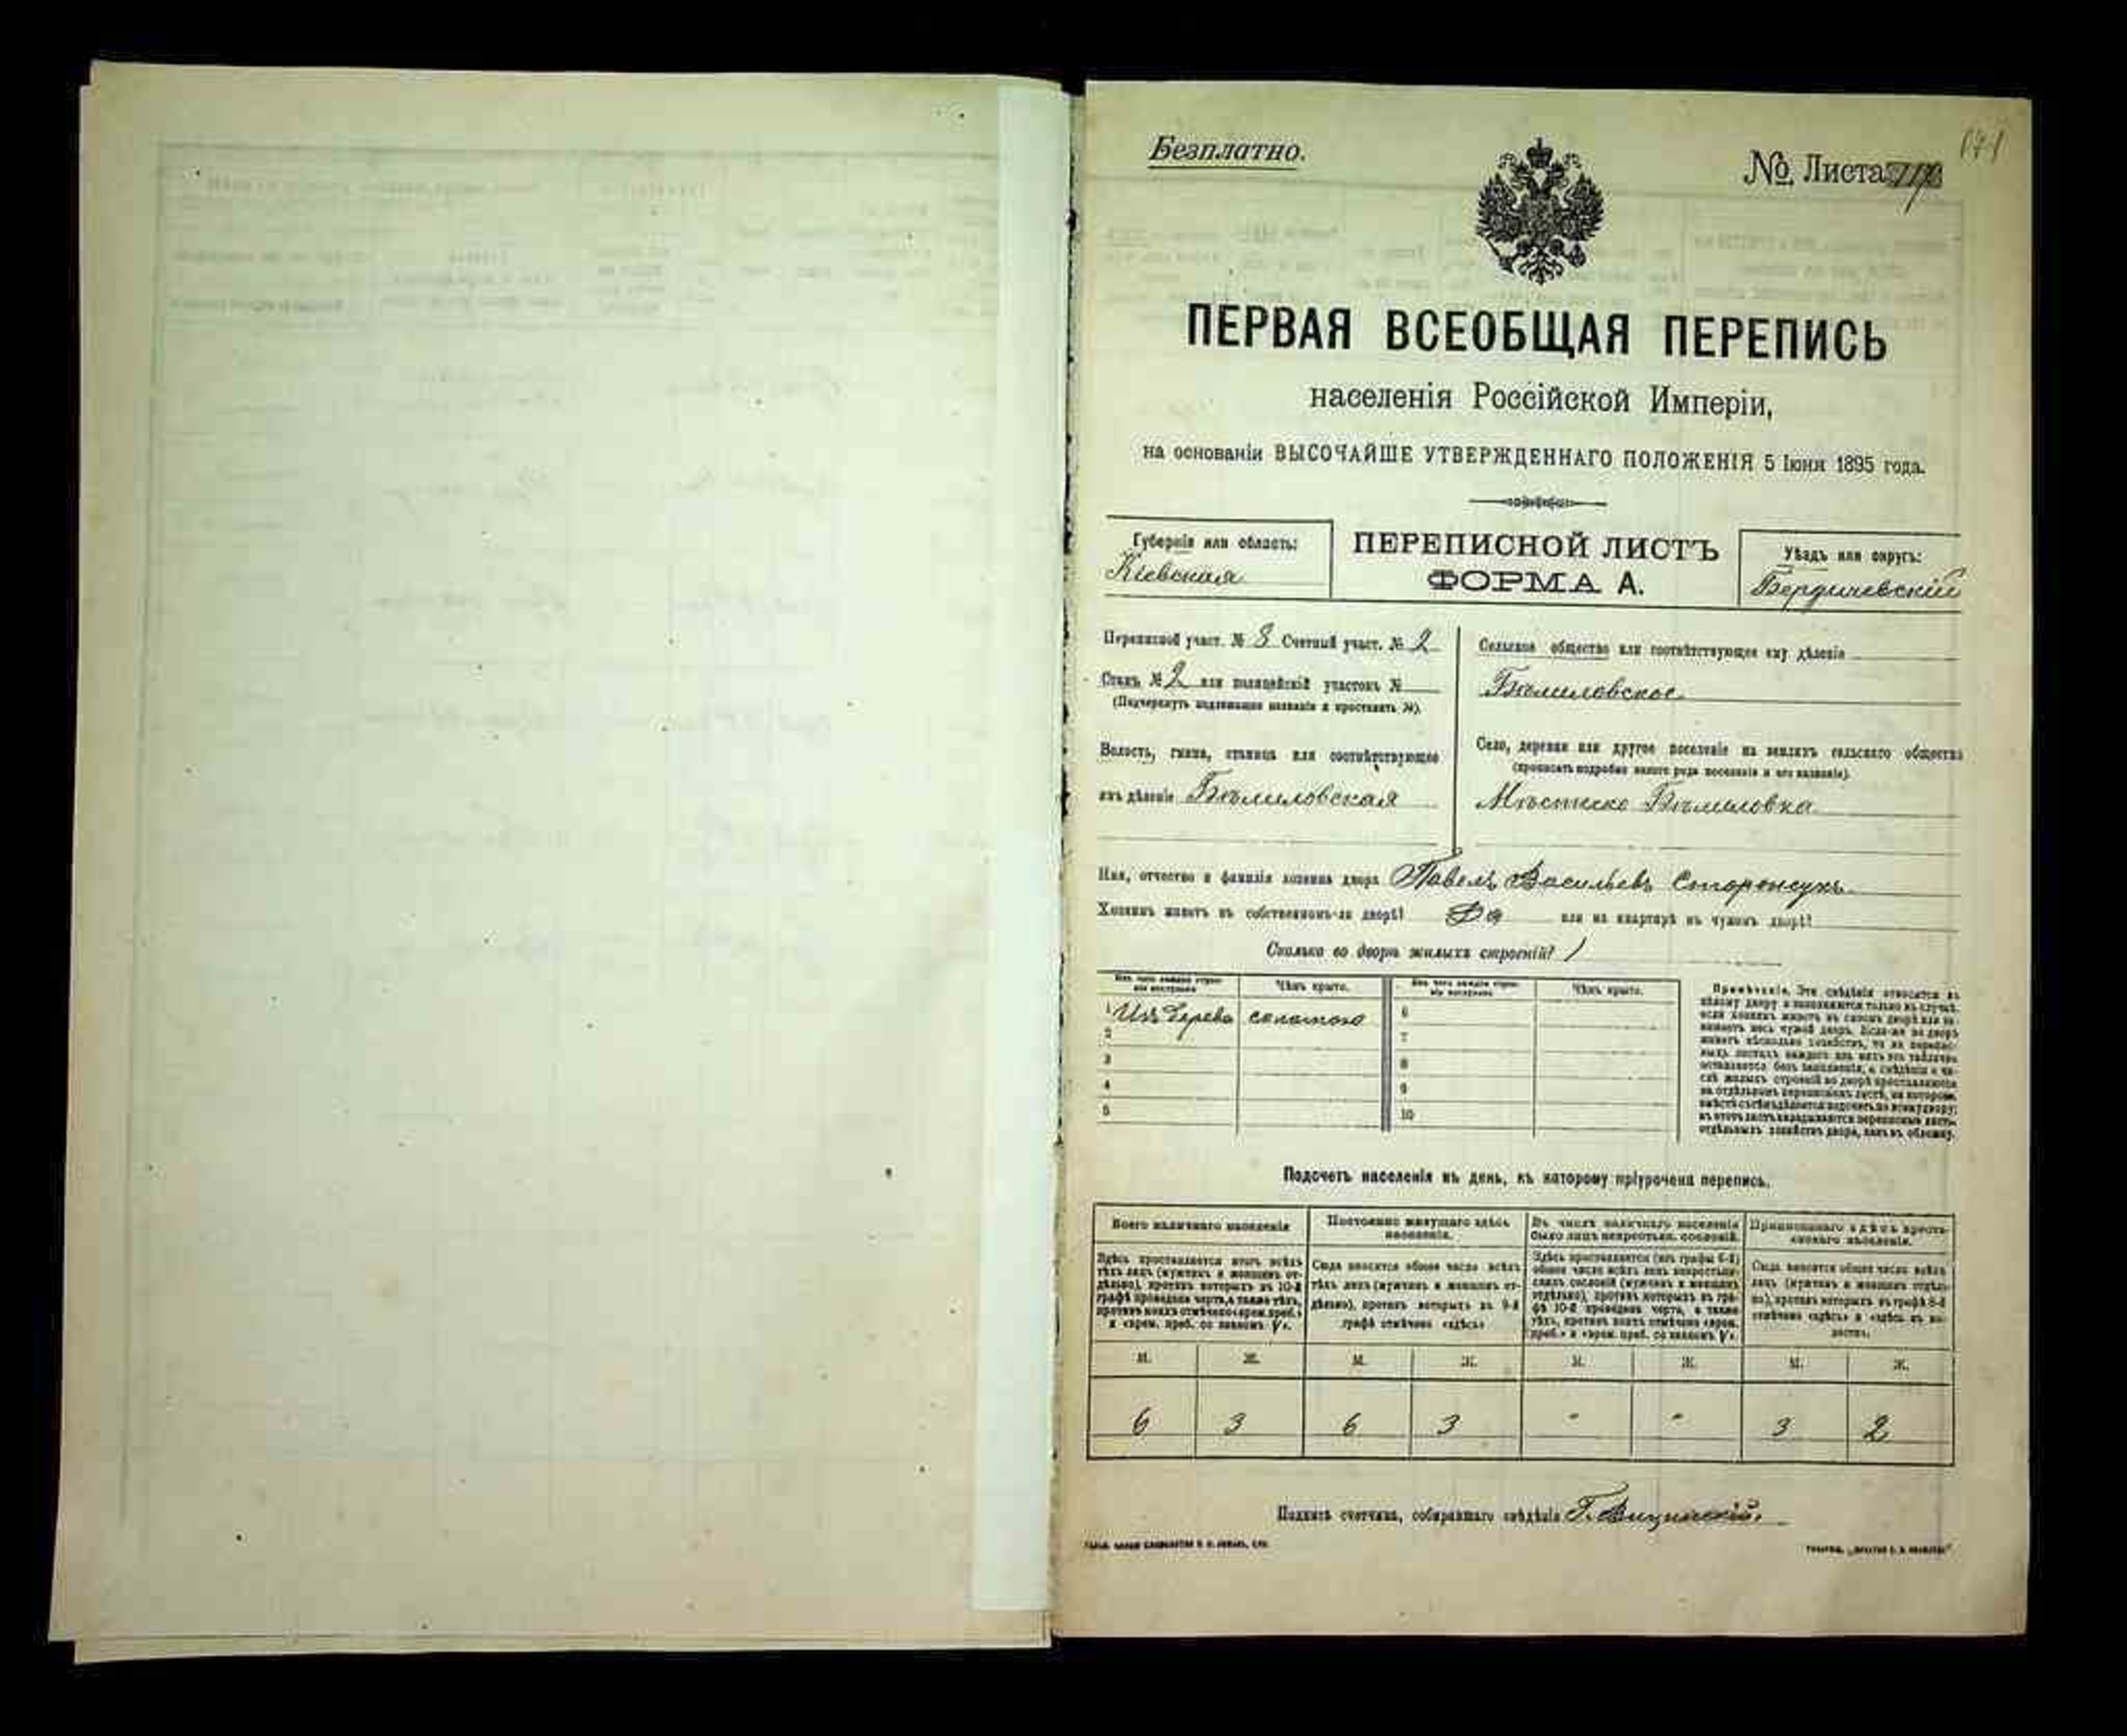 Безплатно.
№ Листа
ПЕРВАЯ ВСЕОБЩАЯ ПЕРЕПИСЬ
населенія Россійской Имперіи,
на основаніи ВЫСОЧАЙШЕ УТВЕРЖДЕННАГО ПОЛОЖЕНІЯ 5 Іюня 1895 года.
Губернія или область:
Кіевская
ПЕРЕПИСНОЙ ЛИСТЪ
ФОРМА А.
Уѣздъ или округъ:
Бердичевскій
Переписной участ. № 8 Счетный участ. № 2
Станъ № 2 или полицейскій участокъ №
(Подчеркнуть надлежащее названіе и проставить №).
Волость, гмина, станица или соотвѣтствующее
имъ дѣленіе Бѣлиловская
Сельское общество или соотвѣтствующее ему дѣленіе
Бѣлиловское
Село, деревня или другое поселеніе на земляхъ сельскаго общества
(прописать подробно какого рода поселеніе и его названіе).
Мѣстечко Бѣлиловка
Имя, отчество и фамилія хозяина двора Павелъ Васильевъ
Хозяинъ живетъ въ собственномъ-ли дворѣ? Да или на квартирѣ въ чужомъ дворѣ?
Сколько во дворѣ жилыхъ строеній? 1
Изъ чего каждое строеніе построено
Чѣмъ крыто.
Изъ чего каждое строеніе построено
Чѣмъ крыто.
1 Изъ дерева соломою 6
2 7
3 8
4 9
5 10
Примѣчаніе. Эти свѣдѣнія относятся къ
цѣлому двору и заполняются только въ случаѣ,
если хозяинъ живетъ въ своемъ дворѣ или за-
нимаетъ весь чужой дворъ. Если-же во дворѣ
живетъ нѣсколько хозяйствъ, то на перепис-
ныхъ листахъ каждаго изъ нихъ эта табличка
оставляется безъ заполненія, а свѣдѣнія о чи-
слѣ жилыхъ строеній во дворѣ проставляются
на отдѣльномъ переписномъ листѣ, на которомъ
вмѣстѣ съ тѣмъ дѣлается подсчетъ по всему двору;
въ этотъ листъ вкладываются переписные листы
отдѣльныхъ хозяйствъ двора, какъ въ обложку.
Подсчетъ населенія въ день, къ которому пріурочена перепись.
Всего наличнаго населенія
Здѣсь проставляется итогъ всѣхъ
тѣхъ лицъ (мужчинъ и женщинъ от-
дѣльно), противъ которыхъ въ 10-й
графѣ проведена черта, а также тѣхъ,
противъ коихъ отмѣчено «врем. преб.»
и «врем. преб. со знакомъ V».
Постоянно живущаго здѣсь
населенія.
Сюда вносится общее число всѣхъ
тѣхъ лицъ (мужчинъ и женщинъ от-
дѣльно), противъ которыхъ въ 9-й
графѣ отмѣчено «здѣсь»
Въ числѣ наличнаго населенія
было лицъ некрестьян. сословій.
Здѣсь проставляется (изъ графы 6-й)
общее число всѣхъ лицъ некрестьян-
скихъ сословій (мужчинъ и женщинъ
отдѣльно), противъ которыхъ въ гра-
фѣ 10-й проведена черта, а также
тѣхъ, противъ коихъ отмѣчено «врем.
преб.» и «врем. преб. со знакомъ V».
Приписаннаго здѣсь кресть-
янскаго населенія.
Сюда вносится общее число всѣхъ
лицъ (мужчинъ и женщинъ отдѣль-
но), противъ которыхъ въ графѣ 8-й
отмѣчено «здѣсь» и «здѣсь въ во-
лости».
М. Ж. М. Ж. М. Ж. М. Ж.
6 3 6 3 " " 3 2
Подпись счетчика, собиравшаго свѣдѣнія Г.